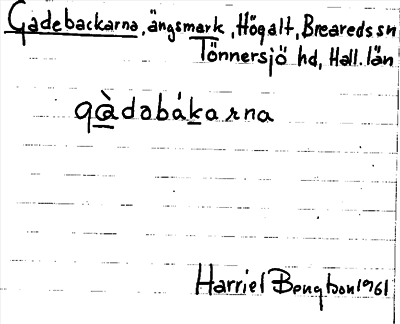 Gadebackarna, ängsmark, Högalt, Breareds sn
Tönnersjö hd, Hall. län
gàdabákarna
Harriet Bengtson 1961